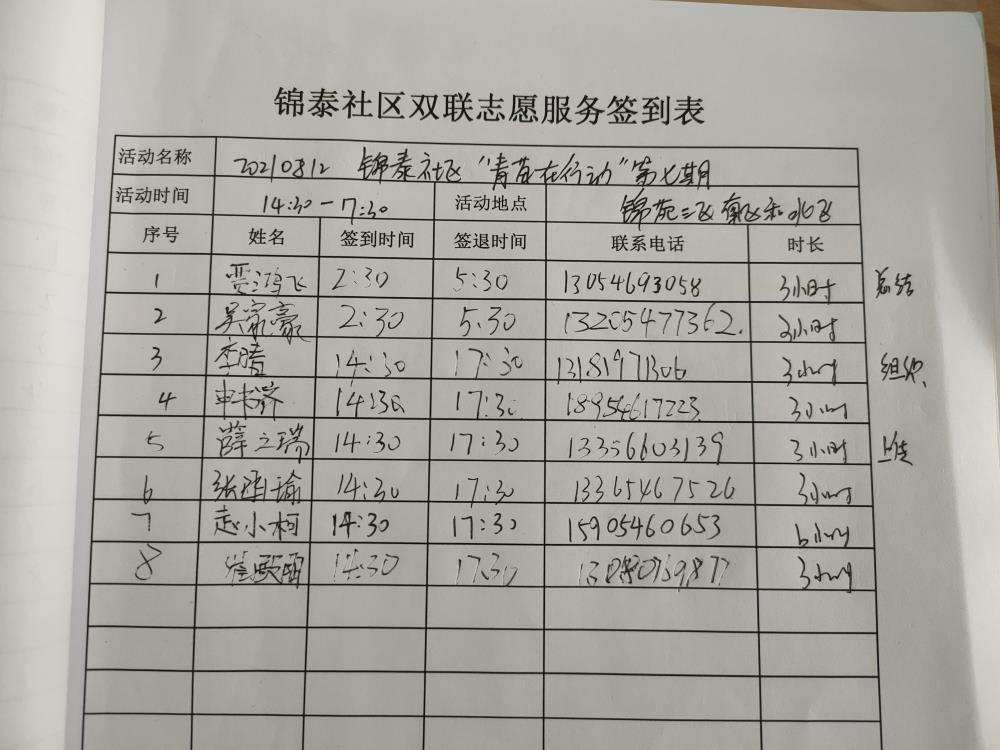 锦泰社区双联志愿服务签到表
活动名称 20210812 锦泰社区“青苗在行动”第七期
活动时间 14:30-17:30 活动地点 锦苑三飞
序号 姓名 签到时间 签退时间 联系电话 时长
1 贾鸿飞 2:30 5:30 13054693058 3小时 总结
2 吴家豪 2:30 5:30 13205477362. 3小时
3 李晴 14:30 17:30 13181971306 3小时 组织
4 14:30 17:30 18954617223 3小时
5 薛之瑞 14:30 17:30 13356603139 3小时 上传
6 张雨瑜 14:30 17:30 13365467526 3小时
7 赵小柯 14:30 17:30 15905460653 6小时
8 14:30 17:30 3小时